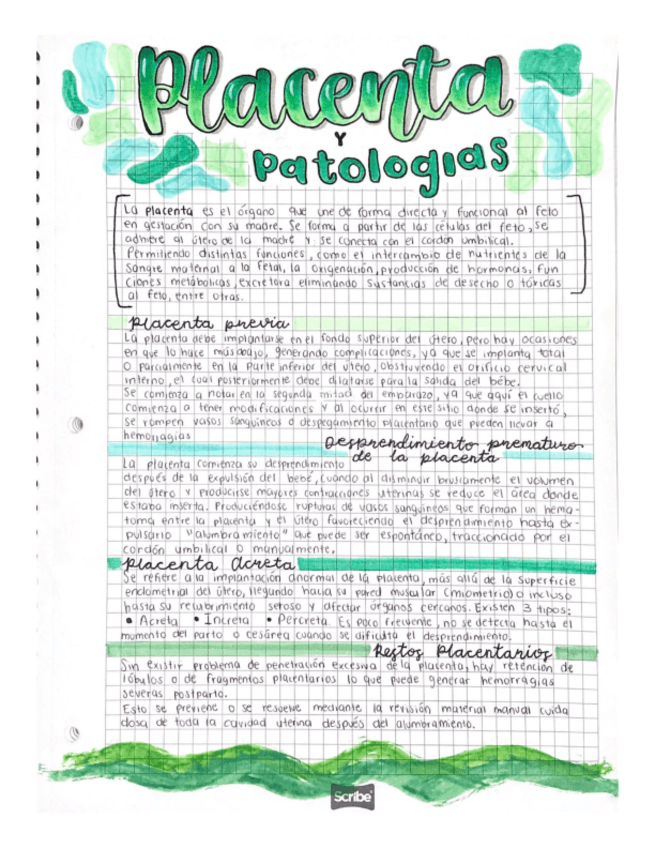 Placenta
Y
Patologías
La placenta es el órgano que une de forma directa y funcional al feto
en gestación con su madre. Se forma a partir de las células del feto, se
adhiere al útero de la madre y se conecta con el cordón umbilical.
Permitiendo distintas funciones, como el intercambio de nutrientes de la
sangre maternal a la fetal, la oxigenación, producción de hormonas, fun
ciones metabólicas, excretora eliminando sustancias de desecho o tóxicas
al feto, entre otras.
Placenta previa
La placenta debe implantarse en el fondo superior del útero, pero hay ocasiones
en que lo hace más abajo, generando complicaciones, ya que se implanta total
o parcialmente en la parte inferior del útero, obstruyendo el orificio cervical
interno, el cual posteriormente debe dilatarse para la salida del bebé.
Se comienza a notar en la segunda mitad del embarazo, ya que aquí el cuello
comienza a tener modificaciones y al ocurrir en este sitio donde se insertó,
se rompen vasos sanguíneos o despegamiento placentario que pueden llevar a
hemorragias
Desprendimiento prematuro
de la placenta
La placenta comienza su desprendimiento
después de la expulsión del bebé, cuando al disminuir bruscamente el volumen
del útero y producirse mayores contracciones uterinas se reduce el área donde
estaba inserta. Produciéndose rupturas de vasos sanguíneos que forman un hema-
toma entre la placenta y el útero favoreciendo el desprendimiento hasta ex-
pulsarlo "alumbramiento" que puede ser espontáneo, traccionado por el
cordón umbilical o manualmente.
Placenta Acreta
Se refiere a la implantación anormal de la placenta, más allá de la superficie
endometrial del útero, llegando hacia su pared muscular (miometrio) o incluso
hasta su recubrimiento seroso y afectar órganos cercanos. Existen 3 tipos:
• Acreta • Increta • Percreta. Es poco frecuente, no se detecta hasta el
momento del parto o cesárea cuando se dificulta el desprendimiento.
Restos Placentarios
Sin existir problema de penetración excesiva de la placenta, hay retención de
lóbulos o de fragmentos placentarios lo que puede generar hemorragias
severas postparto.
Esto se previene o se resuelve mediante la revisión material manual cuida
dosa de toda la cavidad uterina después del alumbramiento.
Scribe